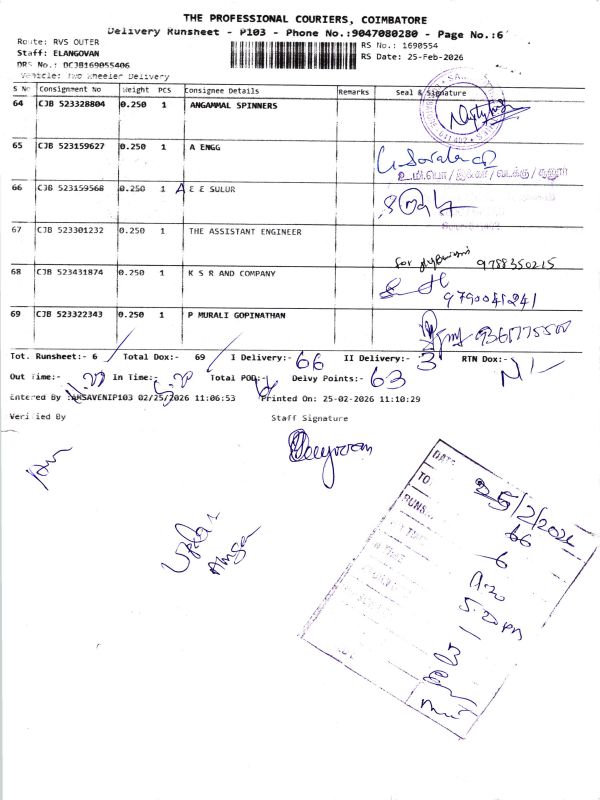 THE PROFESSIONAL COURIERS, COIMBATORE
Delivery Runsheet - P103 - Phone No.:9047080280 - Page No.:6
Route: RVS OUTER
RS No.: 1690554
Staff: ELANGOVAN
RS Date: 25-Feb-2026
DRS No.: DCJB169055406
Vehicle: Two Wheeler Delivery
S No Consignment No Weight PCS Consignee Details Remarks Seal & Signature
64 CJB 523328804 0.250 1 ANGAMMAL SPINNERS
65 CJB 523159627 0.250 1 A ENGG
66 CJB 523159568 0.250 1 A E E SULUR
67 CJB 523301232 0.250 1 THE ASSISTANT ENGINEER
for 9788350215
68 CJB 523431874 0.250 1 K S R AND COMPANY
9790041241
69 CJB 523322343 0.250 1 P MURALI GOPINATHAN
Tot. Runsheet:- 6 Total Dox:- 69 I Delivery:- 66 II Delivery:- 3 RTN Dox:-
Out Time:- In Time:- Total POD:- Delvy Points:- 63
Entered By :AHSAVENIP103 02/25/2026 11:06:53 Printed On: 25-02-2026 11:10:29
Verified By Staff Signature
DATE 25/2/2026
TO 66
RUNS 6
5.20 pm
63